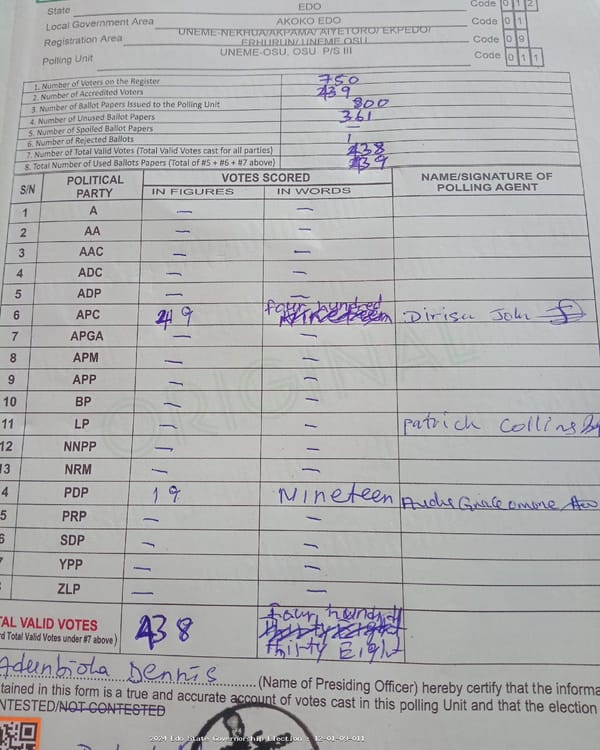 State EDO Code 0 1 2
Local Government Area AKOKO EDO Code 0 1
Registration Area UNEME-NEKHUA/AKPAMA/ AIYETORO/ EKPEDO/ ERHURUN/ UNEME OSU Code 0 9
Polling Unit UNEME-OSU, OSU P/S III Code 0 1 1
1. Number of Voters on the Register 750
2. Number of Accredited Voters 439
3. Number of Ballot Papers Issued to the Polling Unit 800
4. Number of Unused Ballot Papers 361
5. Number of Spoiled Ballot Papers —
6. Number of Rejected Ballots 1
7. Number of Total Valid Votes (Total Valid Votes cast for all parties) 438
8. Total Number of Used Ballots Papers (Total of #5 + #6 + #7 above) 439
S/N POLITICAL PARTY VOTES SCORED NAME/SIGNATURE OF POLLING AGENT
IN FIGURES IN WORDS
1 A — —
2 AA — —
3 AAC — —
4 ADC — —
5 ADP — —
6 APC 419 four hundred Nineteen Dirisu John
7 APGA — —
8 APM — —
9 APP — —
10 BP — —
11 LP — — Patrick Collins
12 NNPP — —
13 NRM — —
4 PDP 19 Nineteen
5 PRP — —
6 SDP — —
7 YPP — —
ZLP — —
TAL VALID VOTES 438 four hundred
d Total Valid Votes under #7 above) thirty Eight
Dennis (Name of Presiding Officer) hereby certify that the informa
tained in this form is a true and accurate account of votes cast in this polling Unit and that the election
NTESTED/NOT CONTESTED
ORIGINAL
2024 Edo State Governorship Election : 12-01-09-011